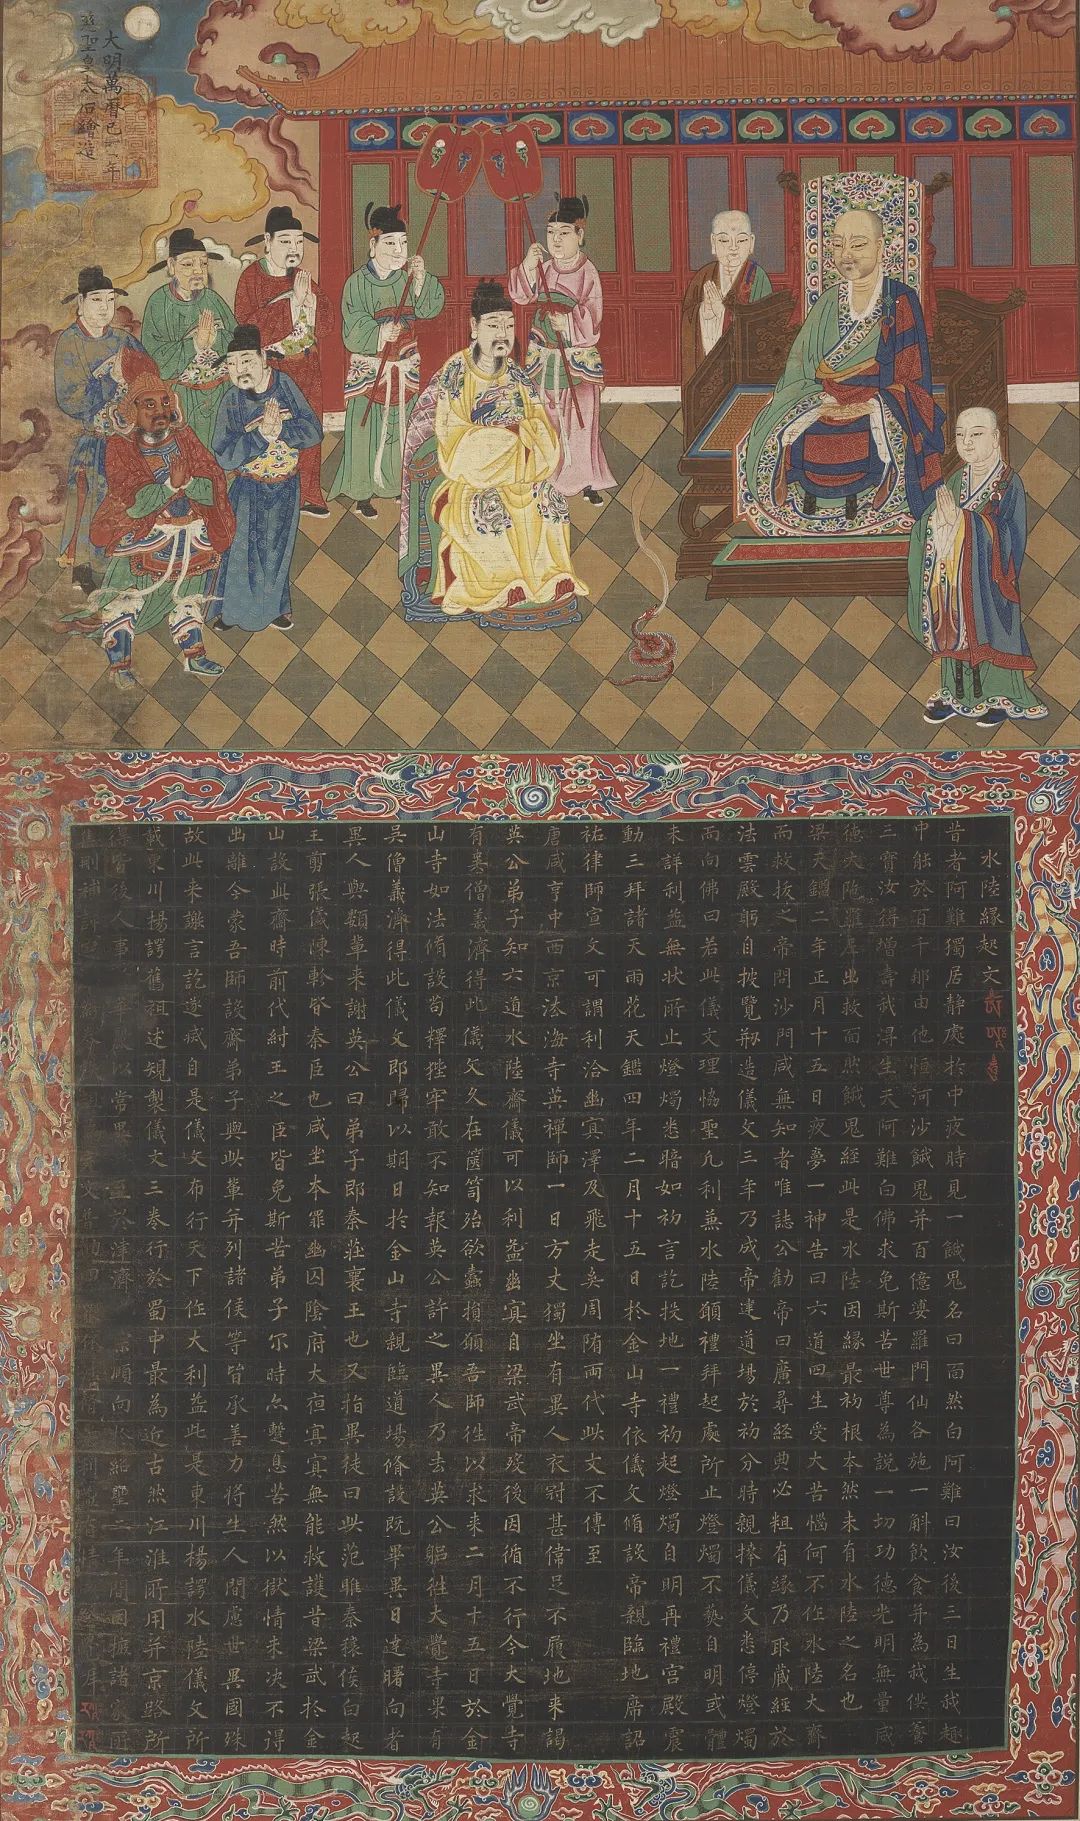 大明萬曆己年
慈聖皇太后繪造
水陸緣起文
昔者阿難獨居靜處於中夜時見一餓鬼名曰面然白阿難曰汝後三日生我趣
中能於百千那由他恒河沙餓鬼并百億婆羅門仙各施一斛飲食并為我供養
三寶汝得增壽我得生天阿難白佛求免斯苦世尊為說一切功德光明無量威
德大陁羅尼出救面然餓鬼經此是水陸因緣最初根本然未有水陸之名也
梁天鑑二年正月十五日夜夢一神告曰六道四生受大苦惱何不作水陸大齋
而救拔之帝問沙門咸無知者唯誌公勸帝曰廣尋經典必粗有緣乃取藏經於
法雲殿躬自披覽刱造儀文三年乃成帝建道場於初分時親捧儀文悉停燈燭
而向佛曰若此儀文理恊聖凡利兼水陸願禮拜起處所止燈燭不爇自明或體
未詳利益無狀所止燈燭悉暗如初言訖投地一禮初起燈燭自明再禮宮殿震
動三拜諸天雨花天鑑四年二月十五日於金山寺依儀文脩設帝親臨地席詔
祐律師宣文可謂利洽幽冥澤及飛走矣周隋兩代此文不傳至
唐咸亨中西京法海寺英禪師一日方丈獨坐有異人衣冠甚偉足不履地來謁
英公弟子知六道水陸齋儀可以利益幽冥自梁武帝歿後因循不行今大覺寺
有吳僧義濟得此儀文久在篋笥殆欲蠹損願吾師往以求來二月十五日於金
山寺如法脩設苟釋狴牢敢不知報英公許之異人乃去英公躬往大覺寺果有
吳僧義濟得此儀文即歸以期日於金山寺親臨道場脩設既畢異日達曙向者
異人與類輩來謝英公曰弟子即秦莊襄王也又指異徒曰此范雎秦穰侯白起
王剪張儀陳軫皆秦臣也咸坐本罪幽囚陰府大夜冥冥無能救護昔梁武於金
山設此齋時前代紂王之臣皆免斯苦弟子尓時亦蹔息苦然以獄情未決不得
出離今蒙吾師設齋弟子與此輩并列諸侯等皆承善力將生人間慮世異國殊
故此來謝言訖遂滅自是儀文布行天下作大利益此是東川楊諤水陸儀文所
載東川楊諤舊祖述規製儀文三卷行於蜀中最為近古然江淮所用并京路所
後人事以常津濟順向紹聖二年間因擴諸家所
刪補